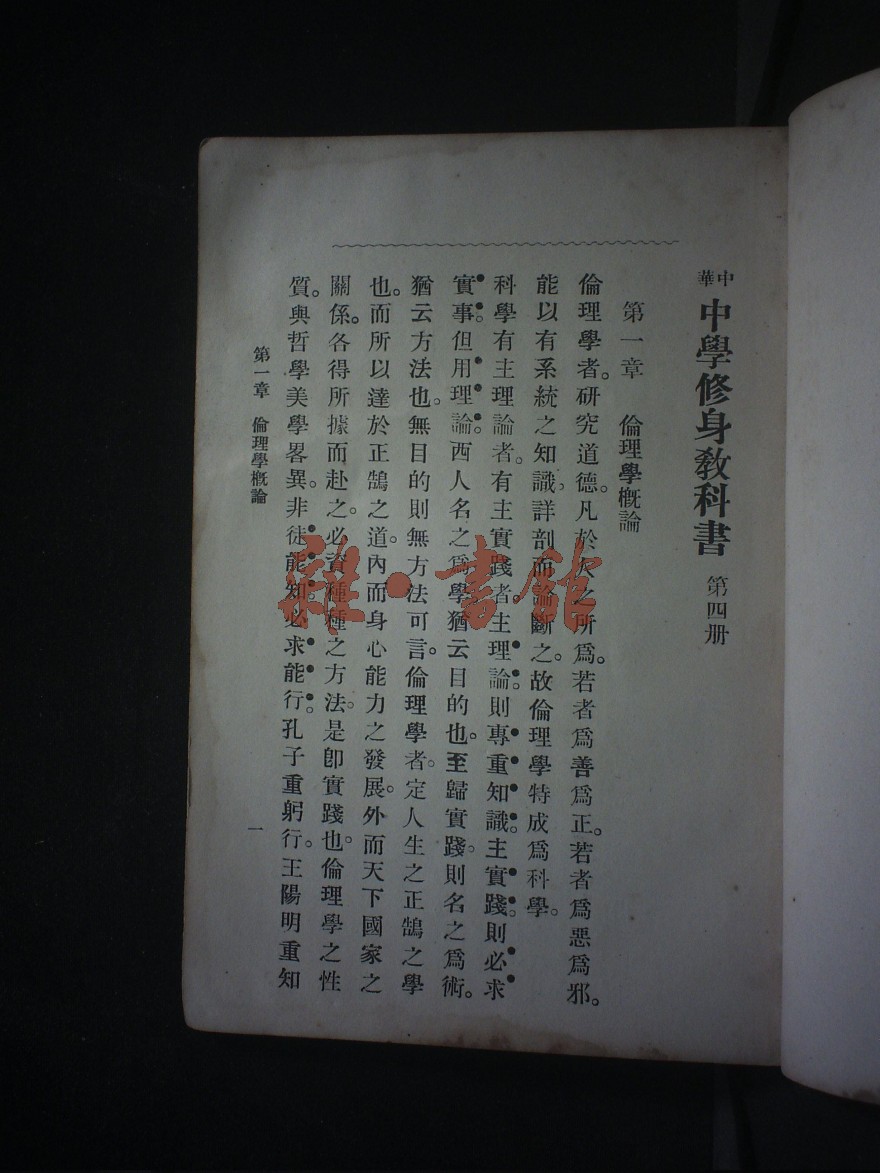 中華 中學修身教科書 第四册
第一章 倫理學槪論
倫理學者。研究道德。凡於人之所爲。若者爲善爲正。若者爲惡爲邪。
能以有系統之知識。詳剖而論斷之。故倫理學特成爲科學。
科學有主理論者。有主實踐者。主理論。則專重知識。主實踐。則必求
實事。但用理論。西人名之爲學。猶云目的也。至歸實踐。則名之爲術。
猶云方法也。無目的則無方法可言。倫理學者。定人生之正鵠之學
也。而所以達於正鵠之道。內而身心能力之發展。外而天下國家之
關係。各得所據而赴之。必資種種之方法。是卽實踐也。倫理學之性
質。與哲學美學畧異。非徒能知。必求能行。孔子重躬行。王陽明重知
第一章 倫理學槪論
一
雜·書館